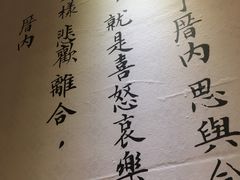 厝內 思與
就是喜怒哀樂
樣悲歡離合，
厝內